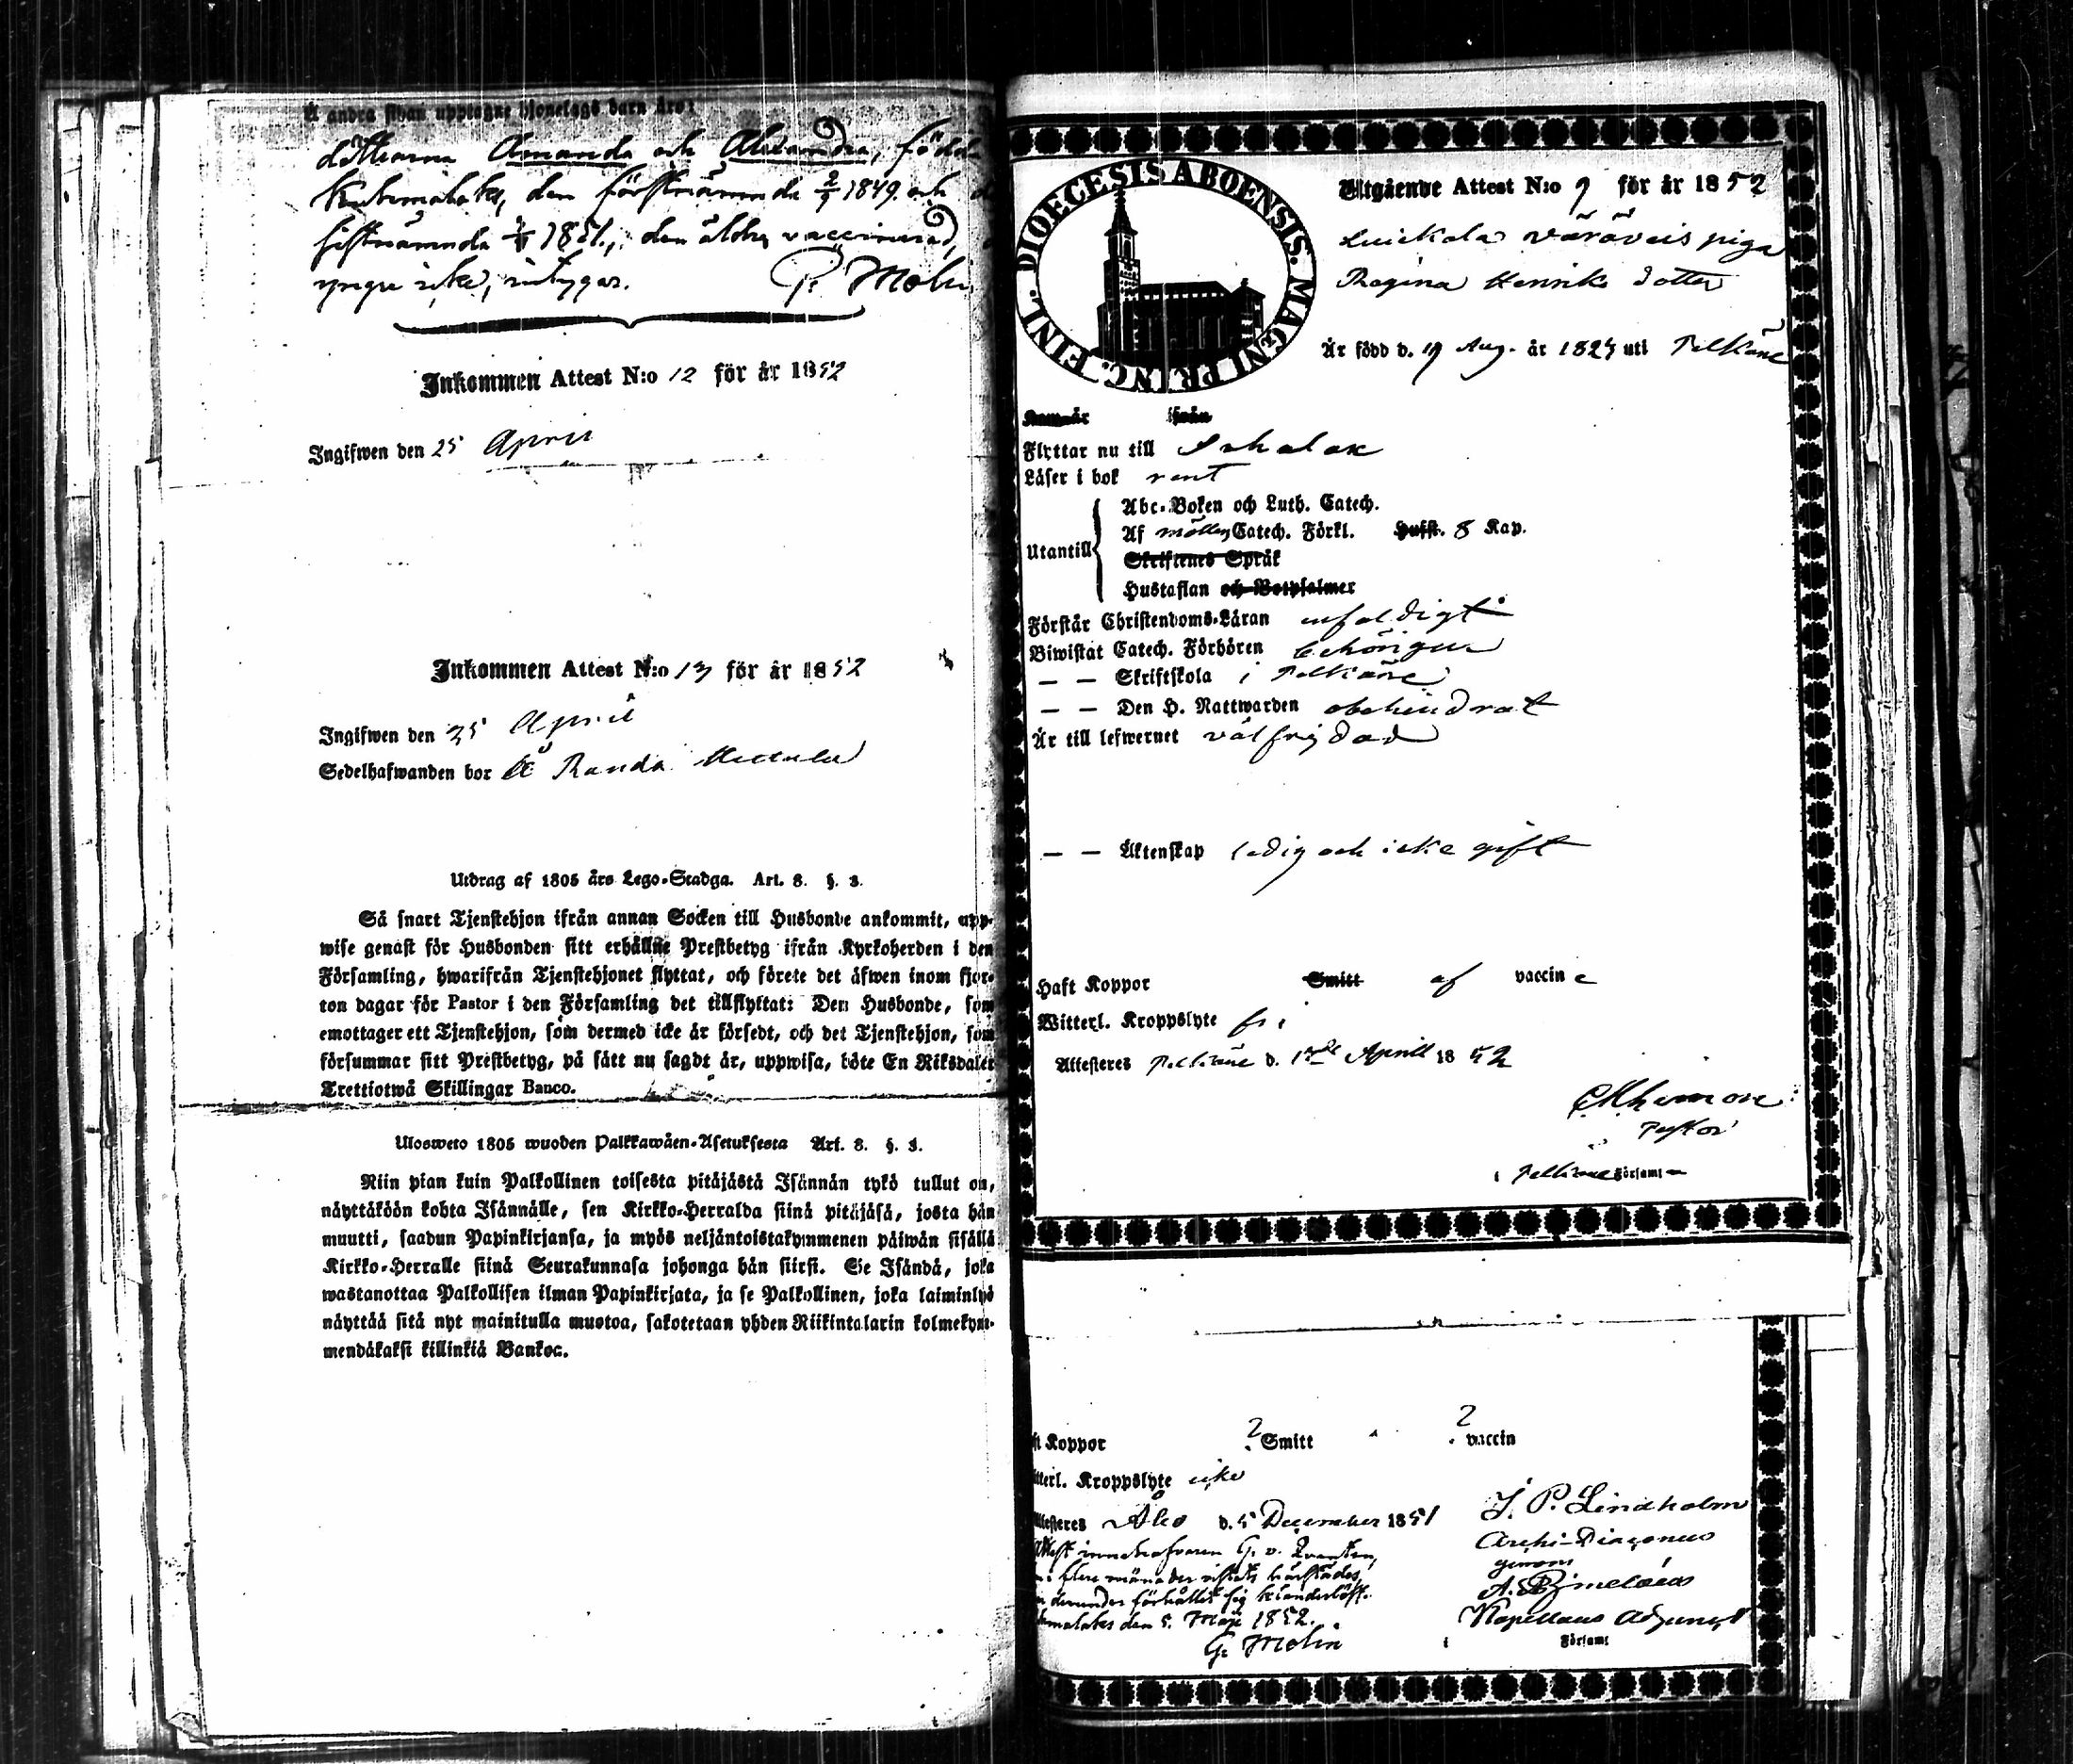 å andra sidan upptagne hjonelags barn äro:
döttrarna Amanda och Alexandra, födda
Kulsmalaks, den förstnämnda 2/9 1849. och
sistnämnda 1851., den äldre vaccinerad,
yngre icke, intygar. G. Molin
Inkommen Attest N:o 12 för år 1852
Ingifwen den 25 April
Inkommen Attest N:o 13 för år 1852
Ingifwen den 25 April
Sedelhafwanden bor å Randa
Utdrag af 1805 års Lego-Stadga. Art. 8. §. 3.
Så snart Tjenstehjon ifrån annan Socken till Husbonde ankommit, upp-
wise genast för Husbonden sitt erhållne Prestbetyg ifrån Kyrkoherden i den
Församling, hwarifrån Tjenstehjonet flyttat, och förete det äfwen inom fjor-
ton dagar för Pastor i den Församling det tillflyttat: Den Husbonde, som
emottager ett Tjenstehjon, som dermed icke är försedt, och det Tjenstehjon, som
försummar sitt Prestbetyg, på sätt nu sagdt är, uppwisa, böte En Riksdaler
Trettiotwå Skillingar Banco.
Ulosweto 1805 wuoden Palkkawäen-Asetuksesta Art. 8. §. 3.
Niin pian kuin Palkollinen toisesta pitäjästä Isännän tykö tullut on,
näyttäköön kohta Isännälle, sen Kirkko-Herralda siinä pitäjäsä, josta hän
muutti, saadun Papinkirjansa, ja myös neljäntoistakymmenen päiwän sisällä
Kirkko-Herralle siinä Seurakunnasa johonga hän siirsi. Se Isändä, joka
wastanottaa Palkollisen ilman Papinkirjata, ja se Palkollinen, joka laiminlyö
näyttää sitä nyt mainitulla muotoa, sakotetaan yhden Riikintalarin kolmekym-
mendäkaksi killinkiä Bankoa.
DIOECESIS ABOENSIS. MAGNI PRINC. FINL.
Utgående Attest N:o 9 för år 1852
piga
Regina Henriks dotter
Är född d. 19 Aug. år 1825 uti Pelkäne
Kommer ifrån
Flyttar nu till Sahalax
Läser i bok rent
Abc-Boken och Luth. Catech.
Utantill Af möllers Catech. Förkl. Hufst. 8 Kap.
Skriftenes Språk
Hustaflan och Botpsalmer
Förstår Christendoms-Läran enfaldigt
Biwistat Catech. Förhören behörigen
— — Skriftskola i Pelkäne
— — Den H. Nattwarden obehindrat
Är till lefwernet välfrejdad
— — Äktenskap ledig och icke gift
Haft Koppor Smitt af vaccine
Witterl. Kroppslyte fri
Attesteres Pelkäne d. 1 April 1852
Pastor
i Pelkäne Församl
ft Koppor ? Smitt ? vaccin
itterl. Kroppslyte icke
ttesteres Åbo d. 5 December 1851
J. P. Lindholm
Archi-Diaconus
genom
Attest innehafvaren G. v. Qvanten,
flere månader vistats härstädes,
derunder förhållit sig klanderlöst.
den 5. Maji 1852.
G. Molin
Kapellans Adjunct
i Församl